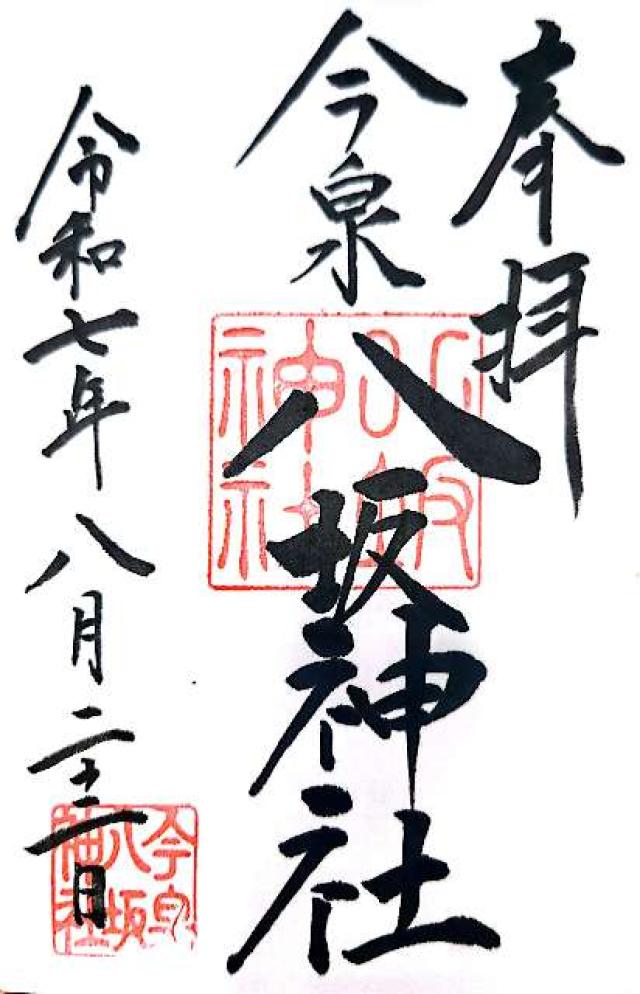 奉拝
今泉八坂神社
令和七年八月二十二日
八坂
神社
今泉
八坂
神社